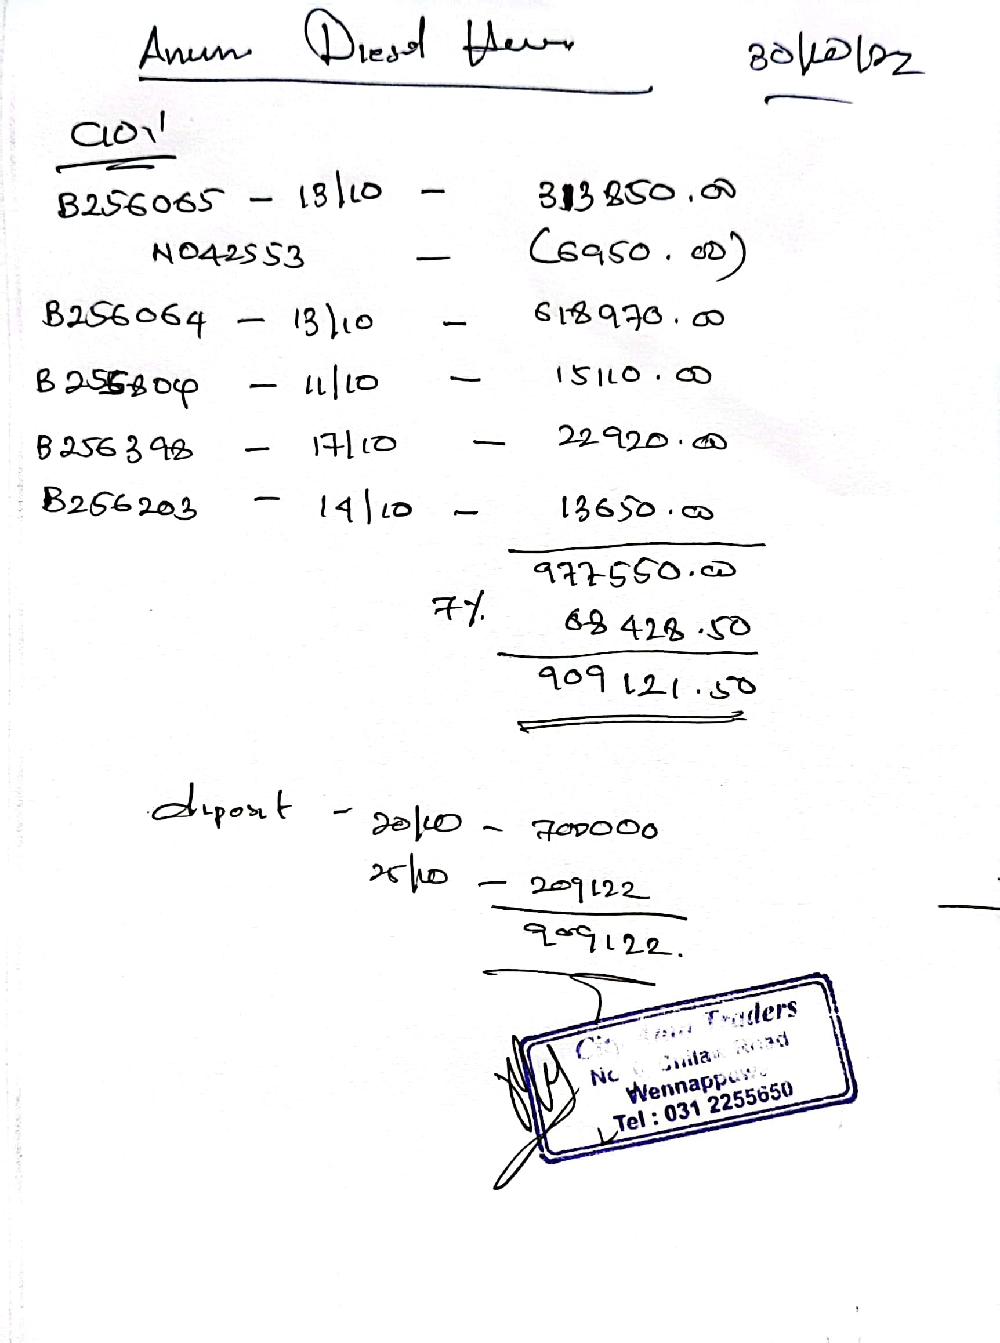 Diesel
30/10/22
B256065 - 13/10 - 313850.00
N042553 - (6950.00)
B256064 - 13/10 - 618970.00
B255804 - 11/10 - 15110.00
B256398 - 17/10 - 22920.00
B256203 - 14/10 - 13650.00
977550.00
7% 68428.50
909121.50
deposit - 20/10 - 700000
25/10 - 209122
909122.
Traders
Road
Wennappuw
Tel : 031 2255650